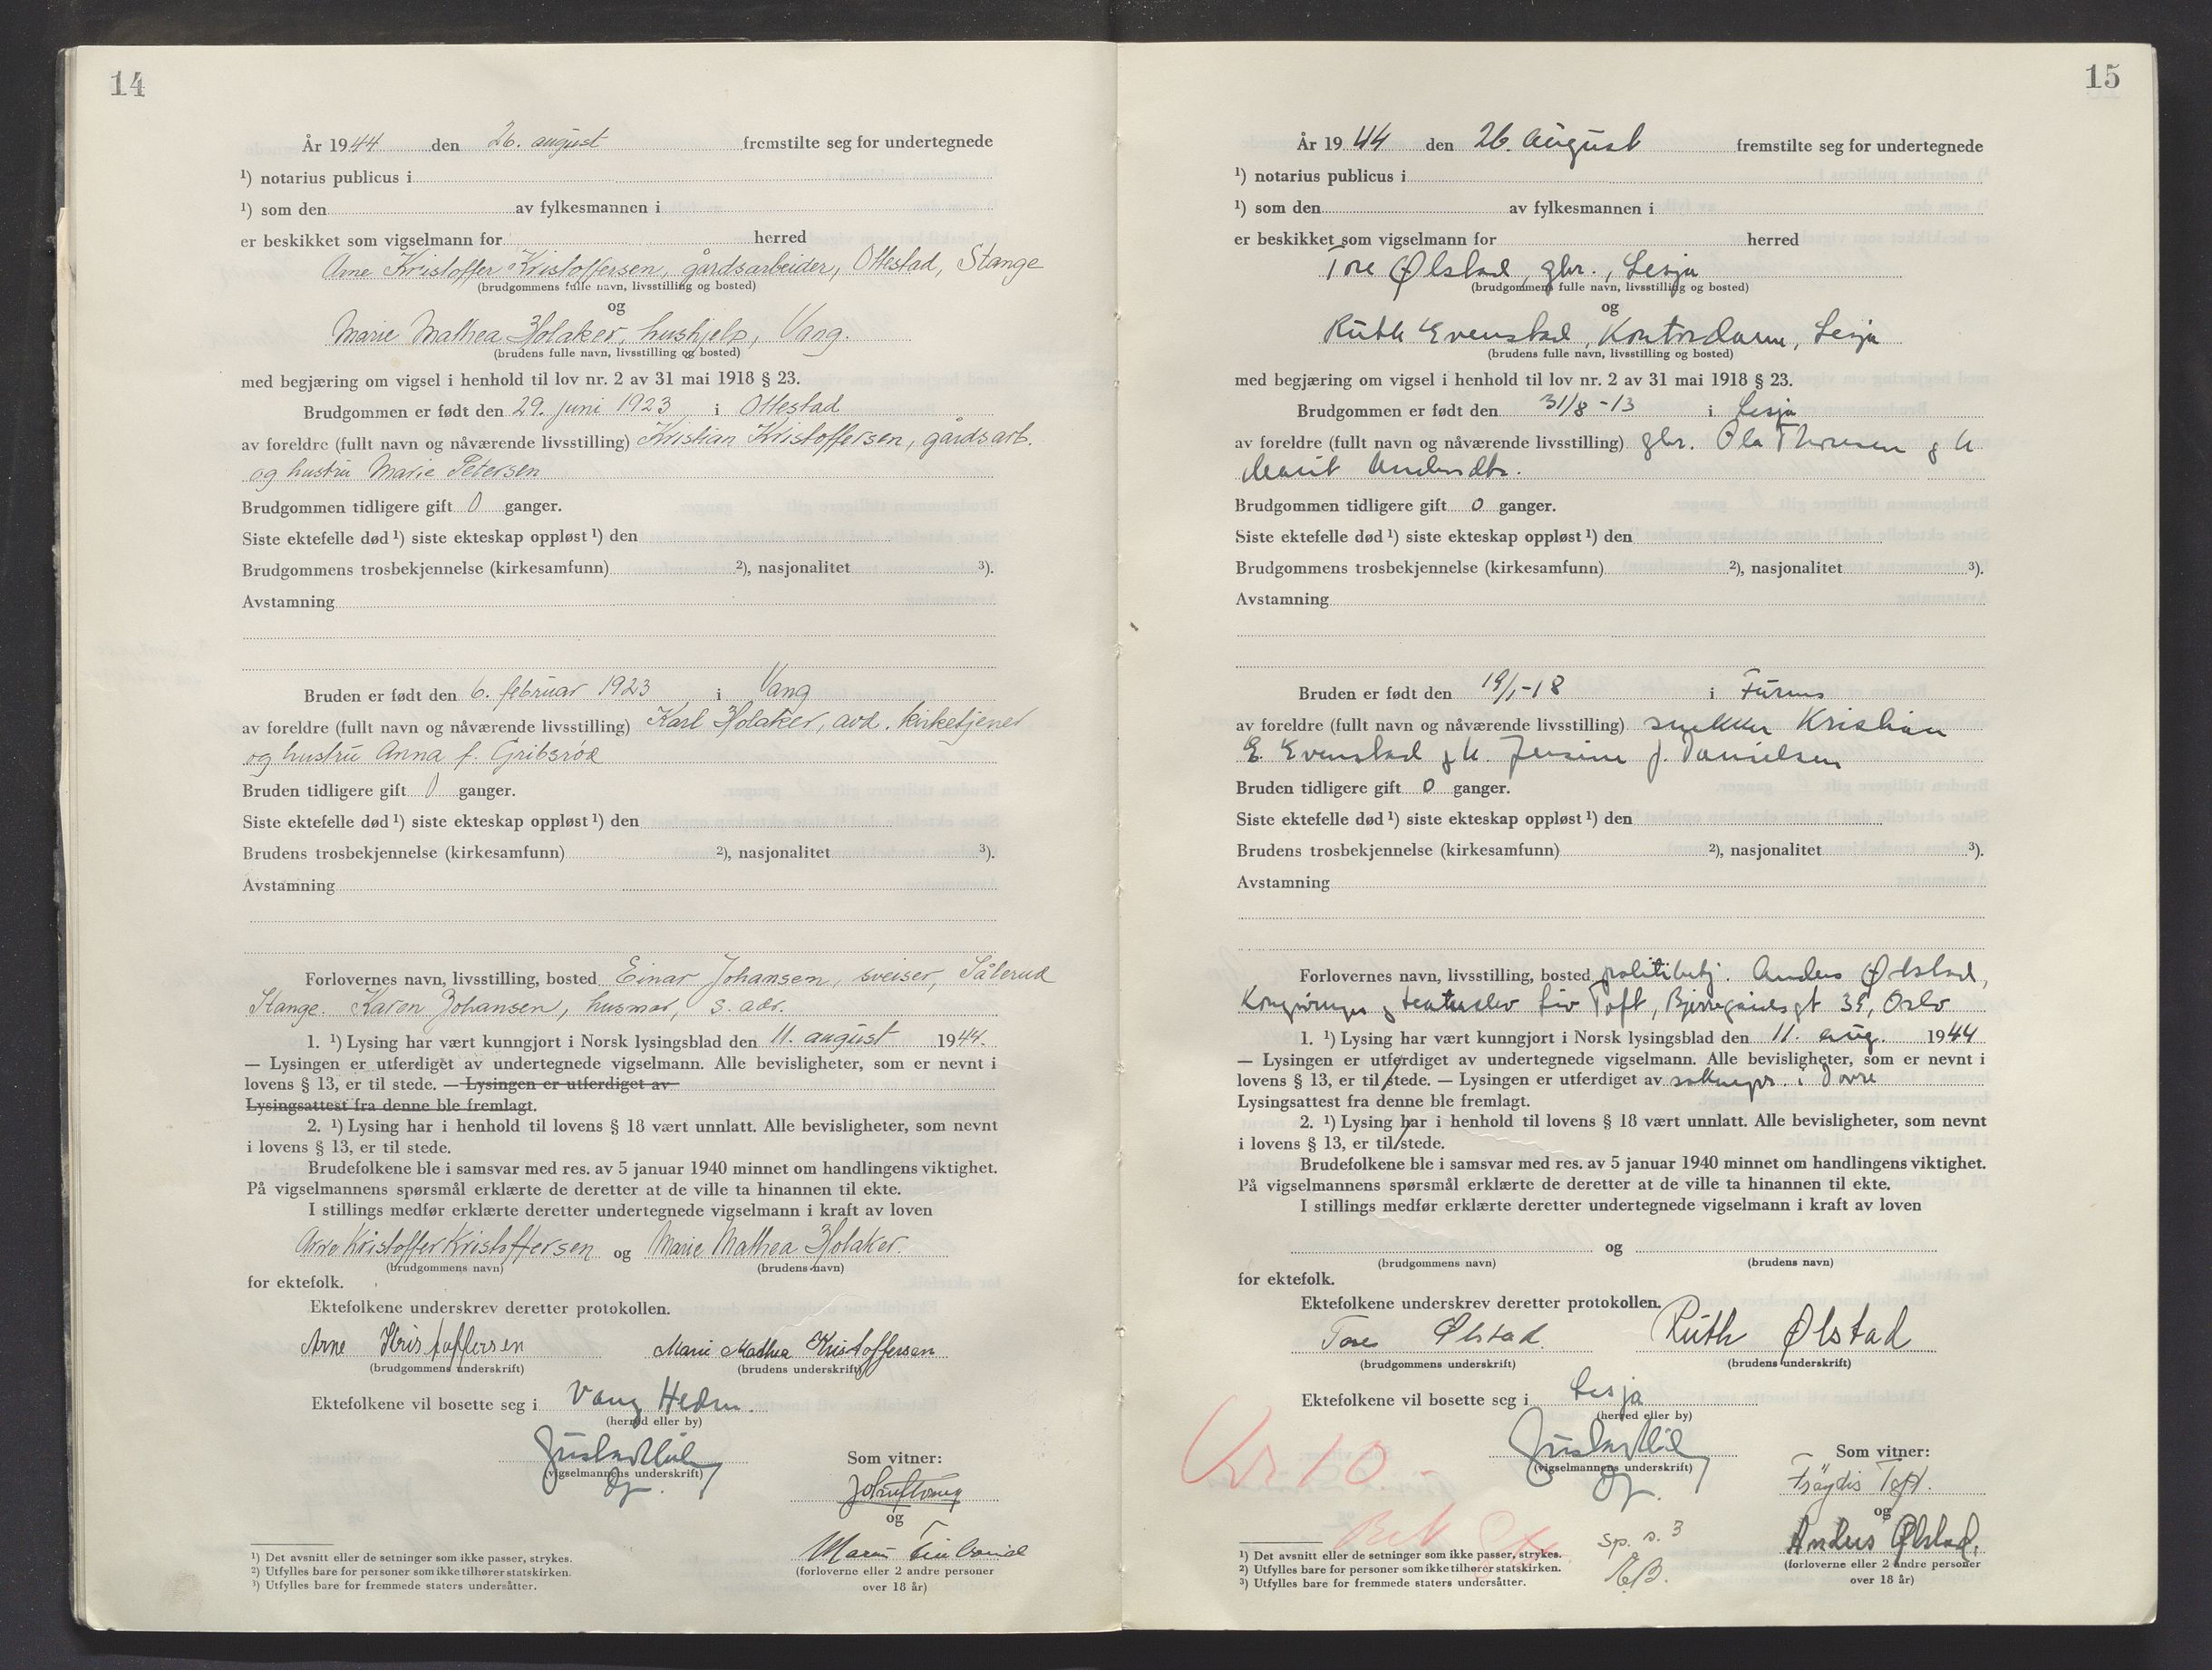 14
År 1944 den 26. august fremstilte seg for undertegnede
¹) notarius publicus i
¹) som den av fylkesmannen i
er beskikket som vigselmann for herred
Arne Kristoffer Kristoffersen, gårdsarbeider, Ottestad, Stange
(brudgommens fulle navn, livsstilling og bosted)
og
Marie Mathea Holaker, hushjelp, Vang.
(brudens fulle navn, livsstilling og bosted)
med begjæring om vigsel i henhold til lov nr. 2 av 31 mai 1918 § 23.
Brudgommen er født den 29. juni 1923 i Ottestad
av foreldre (fullt navn og nåværende livsstilling) Kristian Kristoffersen, gårdsarb.
og hustru Marie Petersen
Brudgommen tidligere gift 0 ganger.
Siste ektefelle død ¹) siste ekteskap oppløst ¹) den
Brudgommens trosbekjennelse (kirkesamfunn) ²), nasjonalitet ³).
Avstamning
Bruden er født den 6. februar 1923 i Vang
av foreldre (fullt navn og nåværende livsstilling) Karl Holaker, avd. kirketjener
og hustru Anna f. Gribsrød
Bruden tidligere gift 0 ganger.
Siste ektefelle død ¹) siste ekteskap oppløst ¹) den
Brudens trosbekjennelse (kirkesamfunn) ²), nasjonalitet ³).
Avstamning
Forlovernes navn, livsstilling, bosted Einar Johansen, sveiser, Sålerud
Stange. Karen Johansen, husmor, s. adr.
1. ¹) Lysing har vært kunngjort i Norsk lysingsblad den 11. august 1944.
— Lysingen er utferdiget av undertegnede vigselmann. Alle bevisligheter, som er nevnt i
lovens § 13, er til stede. — Lysingen er utferdiget av
Lysingsattest fra denne ble fremlagt.
2. ¹) Lysing har i henhold til lovens § 18 vært unnlatt. Alle bevisligheter, som nevnt
i lovens § 13, er til stede.
Brudefolkene ble i samsvar med res. av 5 januar 1940 minnet om handlingens viktighet.
På vigselmannens spørsmål erklærte de deretter at de ville ta hinannen til ekte.
I stillings medfør erklærte deretter undertegnede vigselmann i kraft av loven
Arne Kristoffer Kristoffersen og Marie Mathea Holaker.
(brudgommens navn) (brudens navn)
for ektefolk.
Ektefolkene underskrev deretter protokollen.
Arne Kristoffersen Marie Mathea Kristoffersen
(brudgommens underskrift) (brudens underskrift)
Ektefolkene vil bosette seg i Vang Hedm.
(herred eller by)
(vigselmannens underskrift)
Som vitner:
og
(forloverne eller 2 andre personer
over 18 år)
¹) Det avsnitt eller de setninger som ikke passer, strykes.
²) Utfylles bare for personer som ikke tilhører statskirken.
³) Utfylles bare for fremmede staters undersåtter.
15
År 1944 den 26. august fremstilte seg for undertegnede
¹) notarius publicus i
¹) som den av fylkesmannen i
er beskikket som vigselmann for herred
Tore Ølstad, gbr., Lesja
(brudgommens fulle navn, livsstilling og bosted)
og
Ruth Evenstad, Kontordame, Lesja
(brudens fulle navn, livsstilling og bosted)
med begjæring om vigsel i henhold til lov nr. 2 av 31 mai 1918 § 23.
Brudgommen er født den 31/8 -13 i Lesja
av foreldre (fullt navn og nåværende livsstilling) gbr. Ola Thoresen g h
Marit Andersdtr.
Brudgommen tidligere gift 0 ganger.
Siste ektefelle død ¹) siste ekteskap oppløst ¹) den
Brudgommens trosbekjennelse (kirkesamfunn) ²), nasjonalitet ³).
Avstamning
Bruden er født den 19/1-18 i Furnes
av foreldre (fullt navn og nåværende livsstilling) snekker Kristian
E. Evenstad g h. Jensine f. Danielsen
Bruden tidligere gift 0 ganger.
Siste ektefelle død ¹) siste ekteskap oppløst ¹) den
Brudens trosbekjennelse (kirkesamfunn) ²), nasjonalitet ³).
Avstamning
Forlovernes navn, livsstilling, bosted politibetj. Anders Ølstad,
Kongsvinger g teaterelev Liv Toft, Bjerregaardsgt 39, Oslo
1. ¹) Lysing har vært kunngjort i Norsk lysingsblad den 11. aug. 1944
— Lysingen er utferdiget av undertegnede vigselmann. Alle bevisligheter, som er nevnt i
lovens § 13, er til stede. — Lysingen er utferdiget av soknepr. i Dovre
Lysingsattest fra denne ble fremlagt.
2. ¹) Lysing har i henhold til lovens § 18 vært unnlatt. Alle bevisligheter, som nevnt
i lovens § 13, er til stede.
Brudefolkene ble i samsvar med res. av 5 januar 1940 minnet om handlingens viktighet.
På vigselmannens spørsmål erklærte de deretter at de ville ta hinannen til ekte.
I stillings medfør erklærte deretter undertegnede vigselmann i kraft av loven
og
(brudgommens navn) (brudens navn)
for ektefolk.
Ektefolkene underskrev deretter protokollen.
Tore Ølstad. Ruth Ølstad
(brudgommens underskrift) (brudens underskrift)
Ektefolkene vil bosette seg i Lesja
(herred eller by)
(vigselmannens underskrift)
Som vitner:
Frøydis Toft.
og
Anders Ølstad.
(forloverne eller 2 andre personer
over 18 år)
10
sp. s. 3
¹) Det avsnitt eller de setninger som ikke passer, strykes.
²) Utfylles bare for personer som ikke tilhører statskirken.
³) Utfylles bare for fremmede staters undersåtter.